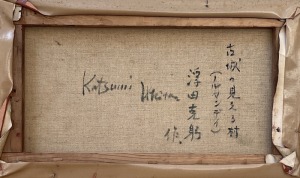 Katsumi Ukita
古城の見える村
(アルカンタイ)
浮田克躬
作